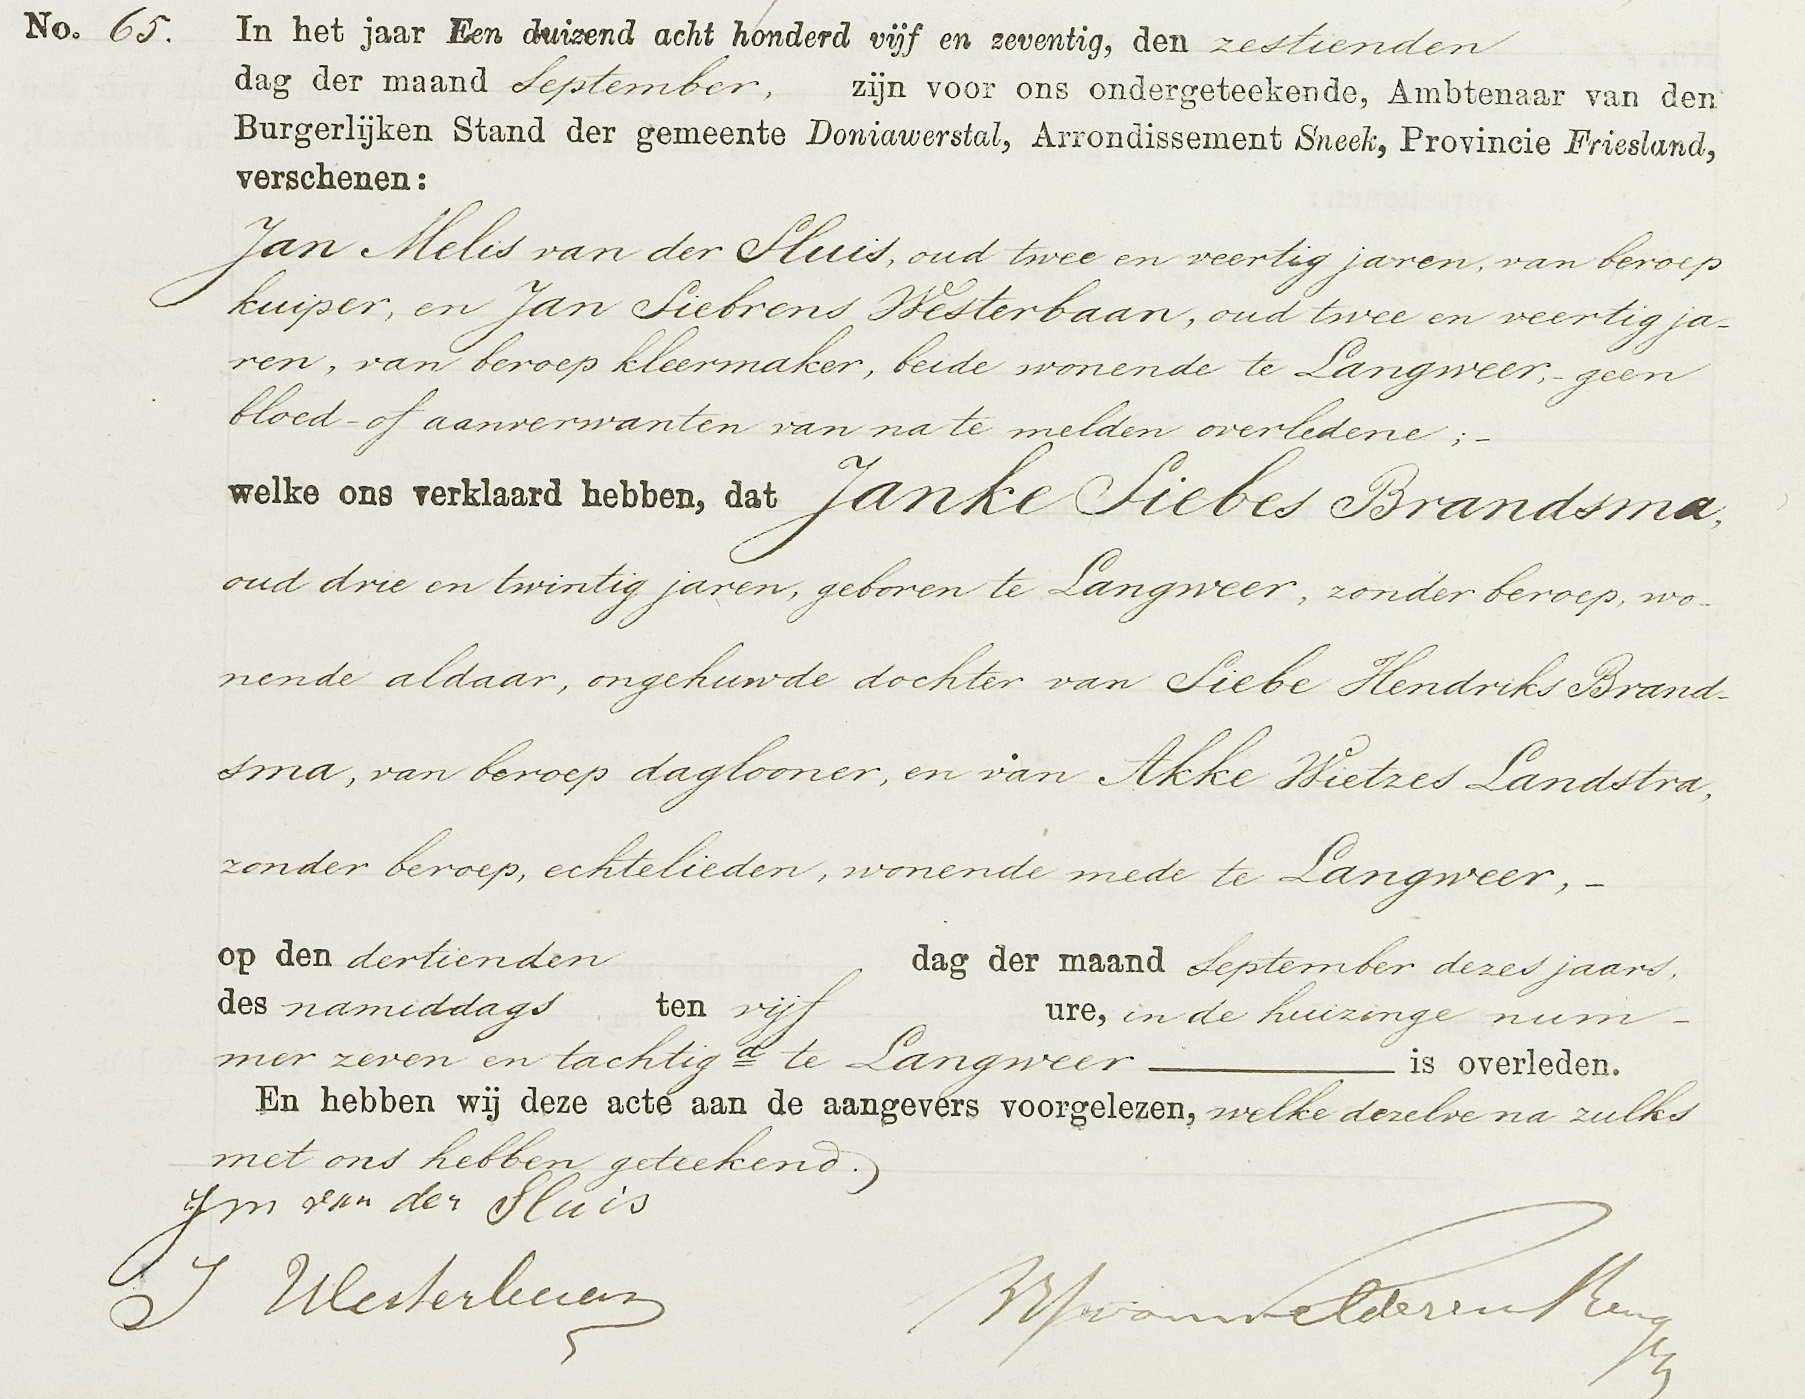 No. 65. In het jaar Een duizend acht honderd vijf en zeventig, den zestienden
dag der maand September, zijn voor ons ondergeteekende, Ambtenaar van den
Burgerlijken Stand der gemeente Doniawerstal, Arrondissement Sneek, Provincie Friesland,
verschenen:
Jan Melis van der Sluis, oud twee en veertig jaren, van beroep
kuiper, en Jan Siebrens Westerbaan, oud twee en veertig ja-
ren, van beroep kleermaker, beide wonende te Langweer,- geen
bloed- of aanverwanten van na te melden overledene ;-
welke ons verklaard hebben, dat Janke Siebes Brandsma,
oud drie en twintig jaren, geboren te Langweer, zonder beroep, wo-
nende aldaar, ongehuwde dochter van Siebe Hendriks Brand-
sma, van beroep daglooner, en van Akke Wietzes Landstra,
zonder beroep, echtelieden, wonende mede te Langweer, -
op den dertienden dag der maand September dezes jaars,
des namiddags ten vijf ure, in de huizinge num-
mer zeven en tachtig a te Langweer is overleden.
En hebben wij deze acte aan de aangevers voorgelezen, welke dezelve na zulks
met ons hebben geteekend.
J m van der Sluis
J Westerbaan
van Welderen Reng